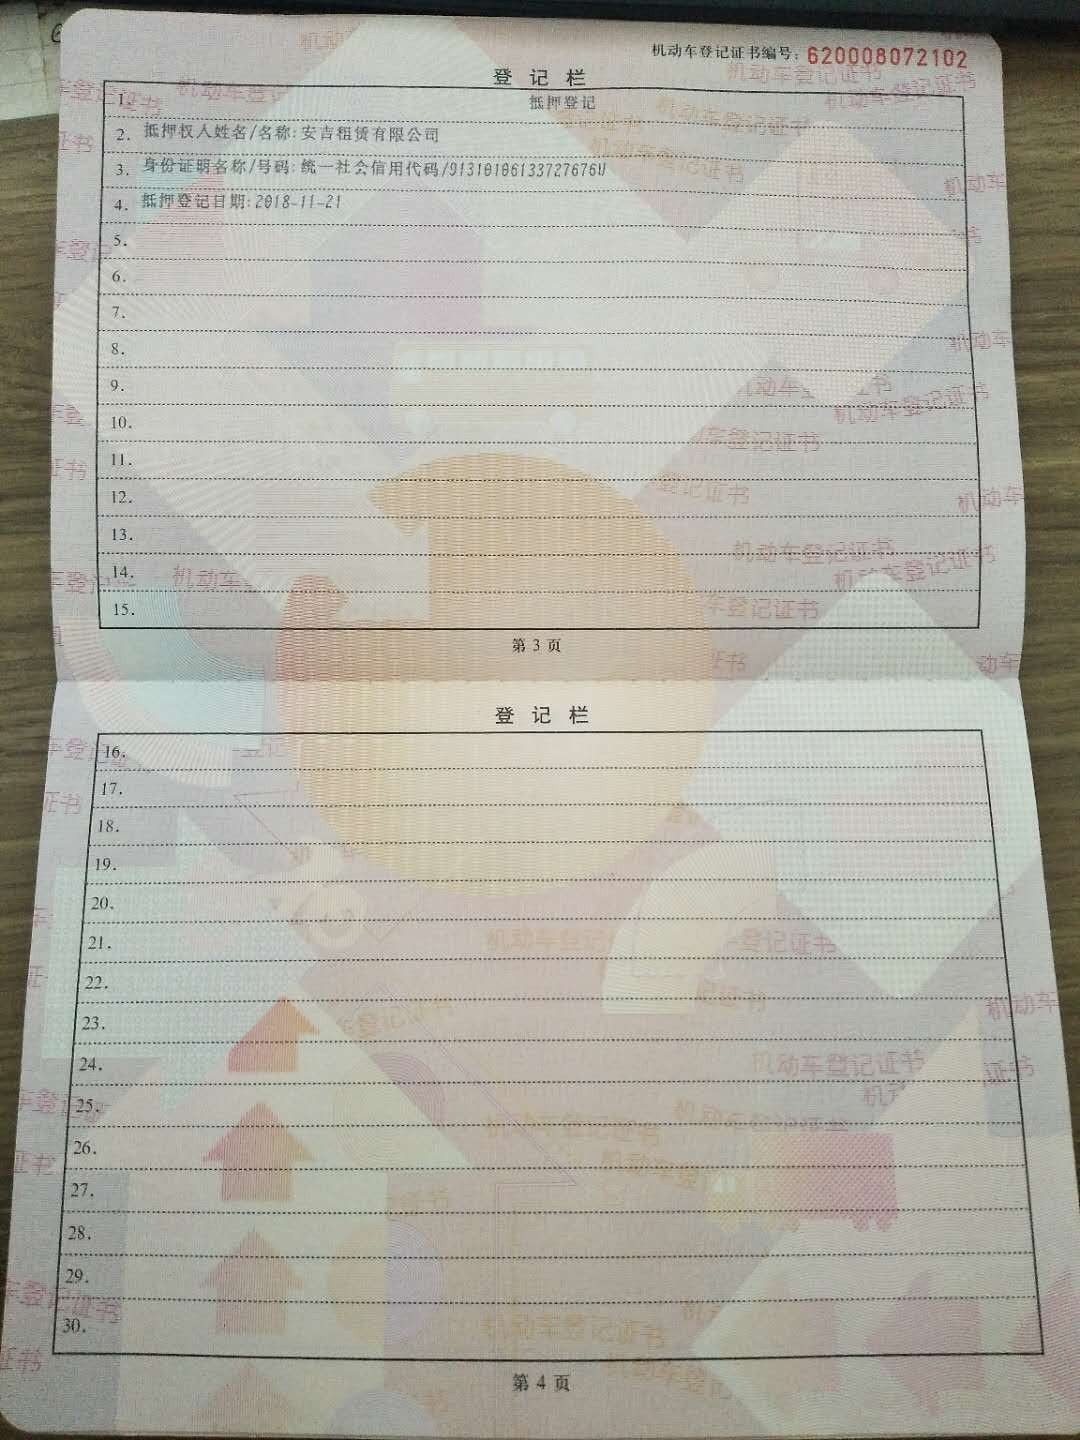 机动车登记证书编号：620008072102
登 记 栏
1. 抵押登记
2. 抵押权人姓名/名称:安吉租赁有限公司
3. 身份证明名称/号码:统一社会信用代码/91310106133727676U
4. 抵押登记日期:2018-11-21
5.
6.
7.
8.
9.
10.
11.
12.
13.
14.
15.
第 3 页
登 记 栏
16.
17.
18.
19.
20.
21.
22.
23.
24.
25.
26.
27.
28.
29.
30.
第 4 页